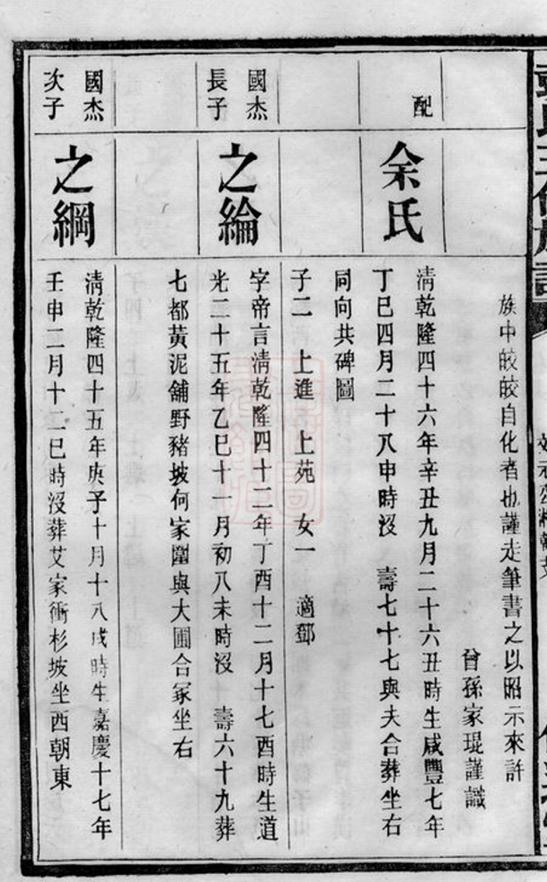 族中皎皎自化者也謹走筆書之以昭示來許
曾孫家琨謹識
配
余氏
清乾隆四十六年辛丑九月二十六丑時生咸豐七年
丁巳四月二十八申時沒 壽七十七與夫合葬坐右
同向共碑圖
子二 上進 上苑 女一 適鄧
國杰
長子
之綸
字帝言清乾隆四十二年丁酉十二月十七酉時生道
光二十五年乙巳十一月初八未時沒 壽六十九葬
七都黃泥舖野豬坡何家園與大圃合冢坐右
國杰
次子
之綱
清乾隆四十五年庚子十月十八戌時生嘉慶十七年
壬申二月十二巳時沒葬艾家衝杉坡坐西朝東